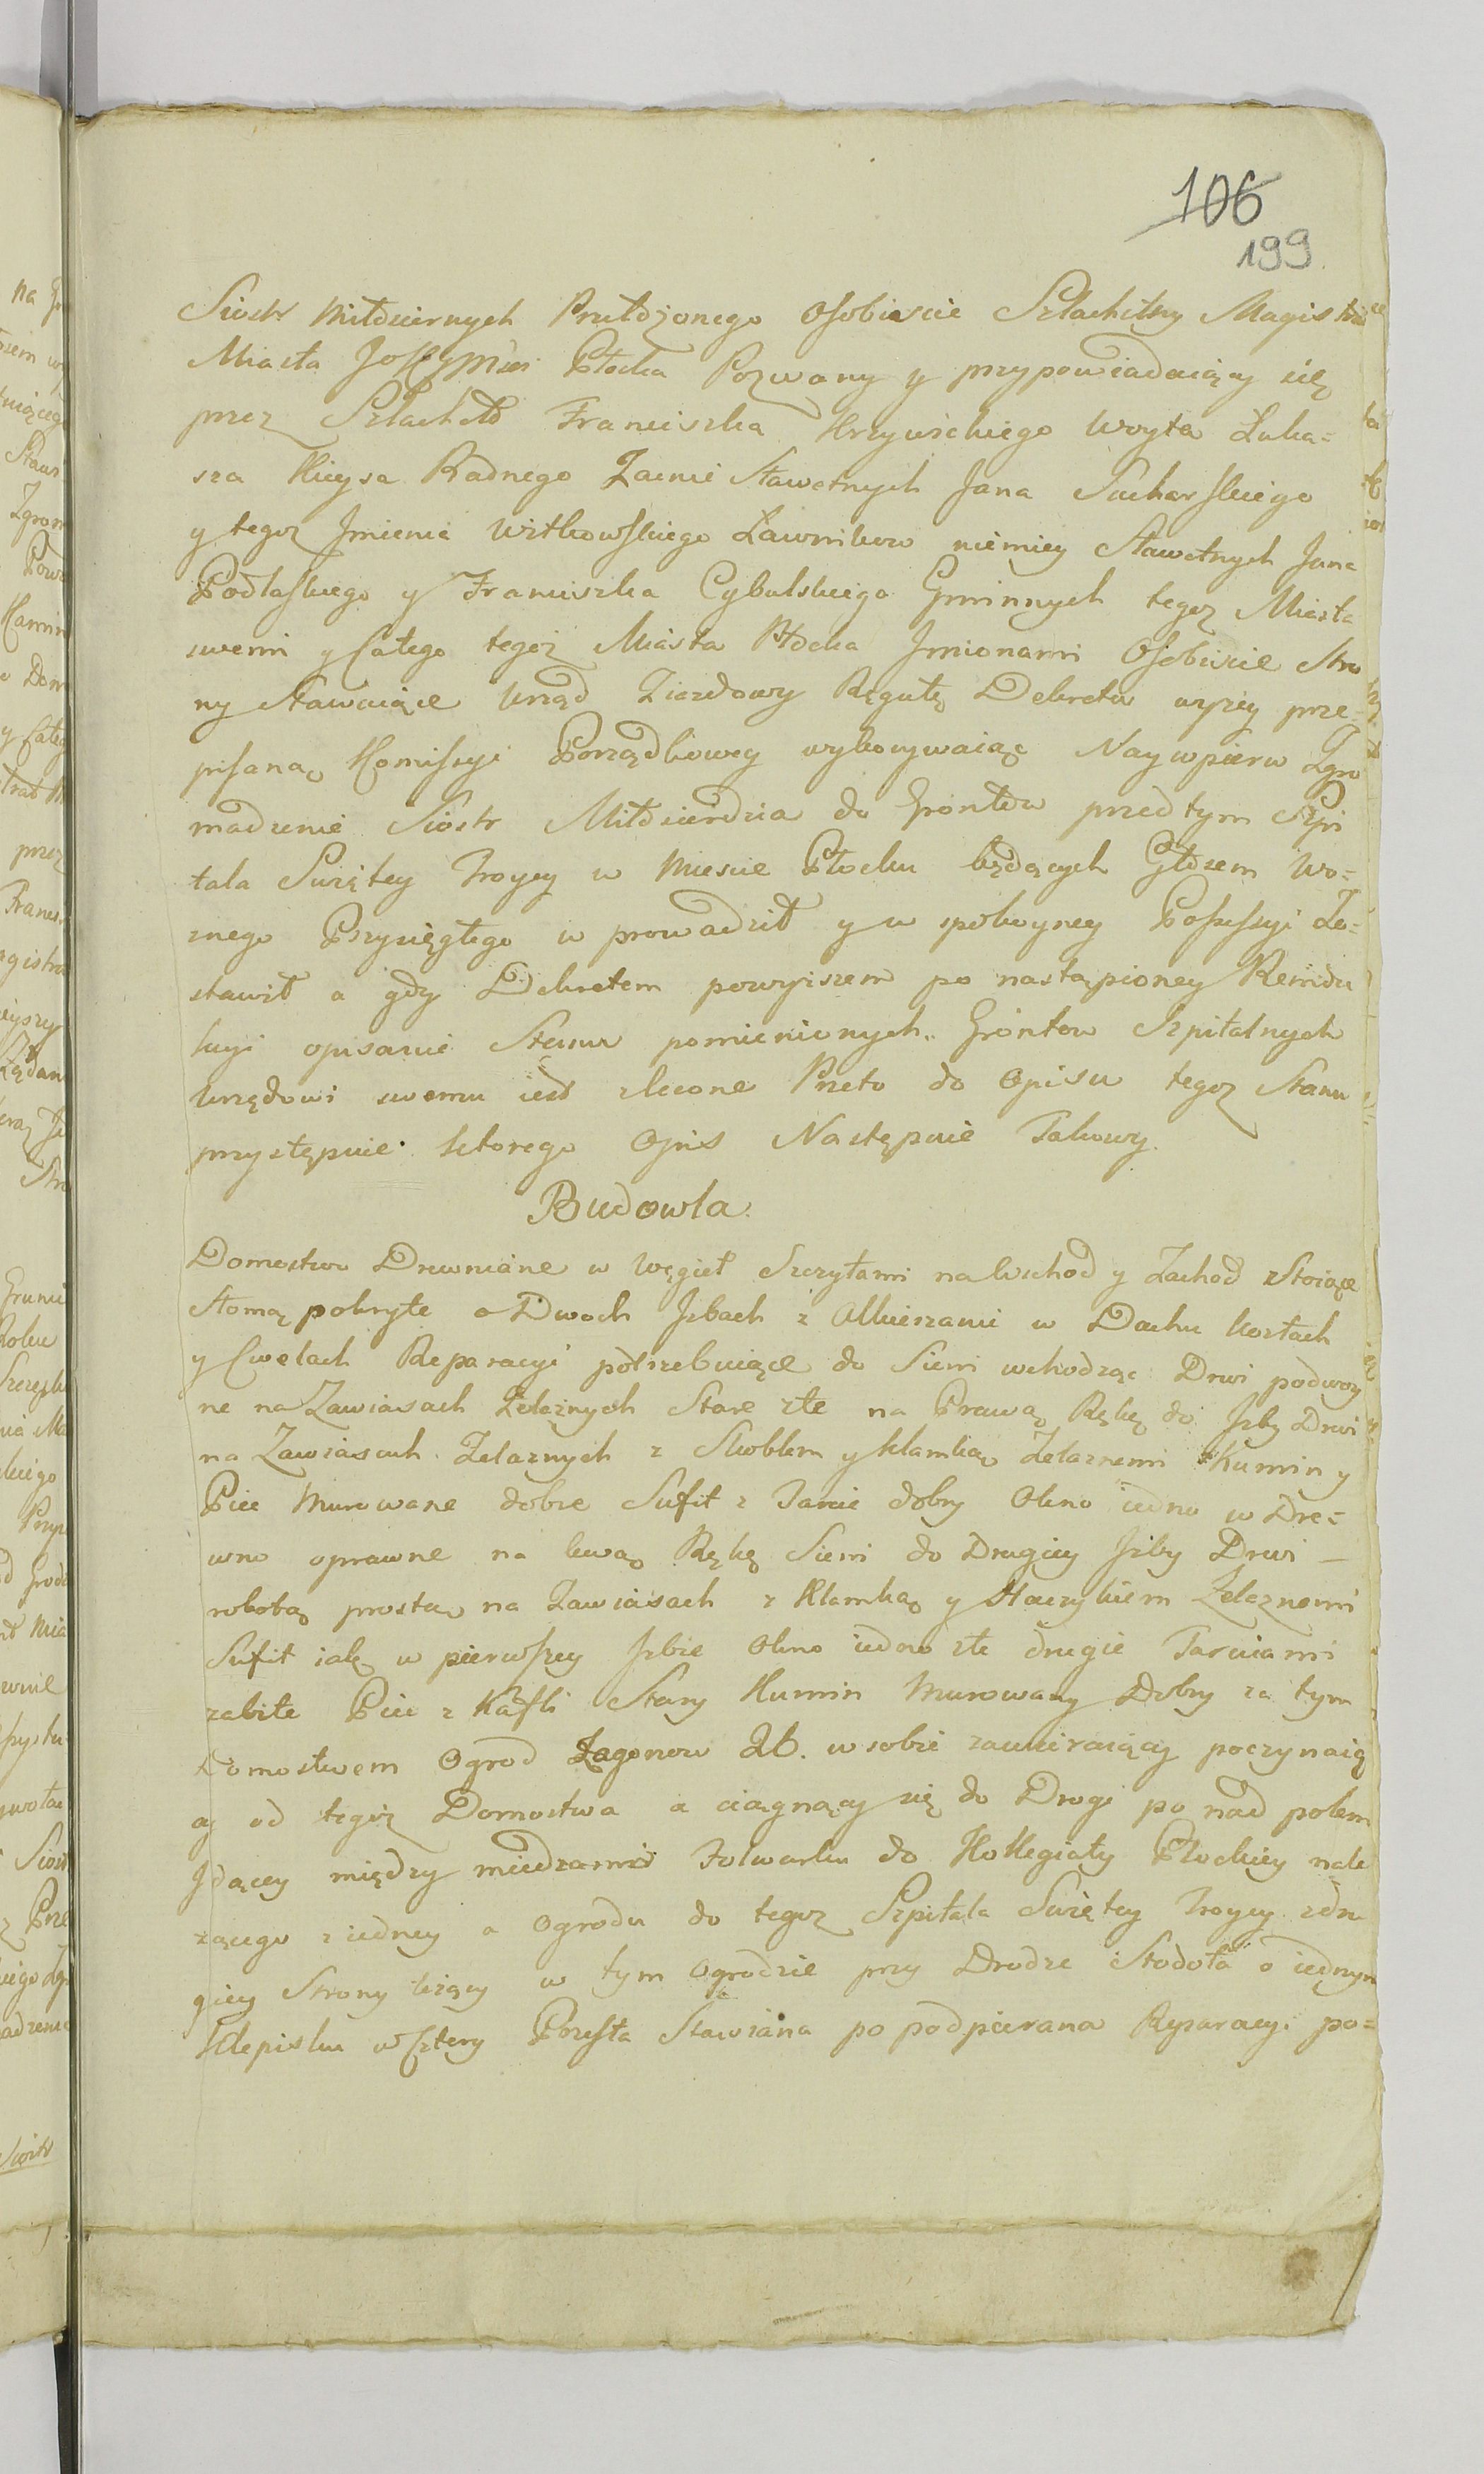 106
199
Siostr Miłosiernych Przełożonego Osobiscie Szlachetny Magistrat
Miasta JoKrMsci Płocka Pozwany y przypowiadaiący się
przez Szlachet. Franciszka Krzywickiego Woyta Łuka=
sza Kieysa Radnego Zacnie Sławetnych Jana Sucharskiego
y tegoz Jmienia Witkowskiego Ławnikow niemiey Sławetnych Jana
Podlaskiego y Franciszka Cybulskiego Gminnych tegoz Miasta
swemi y Całego tegoż Miasta Płocka Jmionami Osobiscie Stro
ny Stawaiące Urząd Ziazdowy Regułę Dekretu wyzey prze=
pisaną Kommissyi Porządkowey wykonywaiąc Naywpierw Zgro
madzenie Siostr Miłosierdzia do Gróntow przed tym Szpi
tala Swiętey Troycy w Miescie Płocku będących Głosem Wo=
znego Przysięgłego w prowadził y w spokoyney Possessyi Zo=
stawił a gdy Dekretem powyższem po nastąpioney Reindu
kcyi opisanie Stanu pomienionych Gróntow Szpitalnych
Urzędowi swemu iest zlecone Przeto do Opisu tegoz Stanu
przystępuie ktorego Opis Następuie Takowy.
Budowla.
Domostwo Drewniane w Węgieł Szczytami na Wschod y Zachod Stoiące
Słomą pokryte o Dwoch Jzbach z Alkierzami w Dachu Kozłach
y Cwelach Reparacyi potrzebuiące do Sieni wchodząc Drwi podwoy
ne na Zawiasach Zelaznych Stare złe na Prawą Rękę do Jzby Drwi
na Zawiasach Zelaznych z Skoblem y klamką Zelaznemi Kumin y
Piec Murowane dobre Sufit z Tarcic dobry Okno iedno w Dre=
wno oprawne na lewą Rękę Sieni do Drugiey Jzby Drwi –
robotą prostą na Zawiasach z Klamką y Haczykiem Zelaznemi
Sufit iak w pierwszey Jzbie Okno iedno złe drugie Tarciami
zabite Piec z Kafli Stary Kumin Murowany Dobry za tym
Domostwem Ogrod Zagonow 26. w sobie zawieraiący poczynaią
cy od tegóż Domostwa a ciągnący się do Drogi po nad polem
Jdącey między miedzami Folwarku do Kollegiaty Płockiey nale
żącego z iedney a Ogrodu do tegoz Szpitala Swiętey Troycy z dru
giey Strony leżący w tym Ogrodzie przy Drodze Stodoła o iednym
Klepisku w Cztery Przęsła Stawiana po podpierana Reparacyi po=